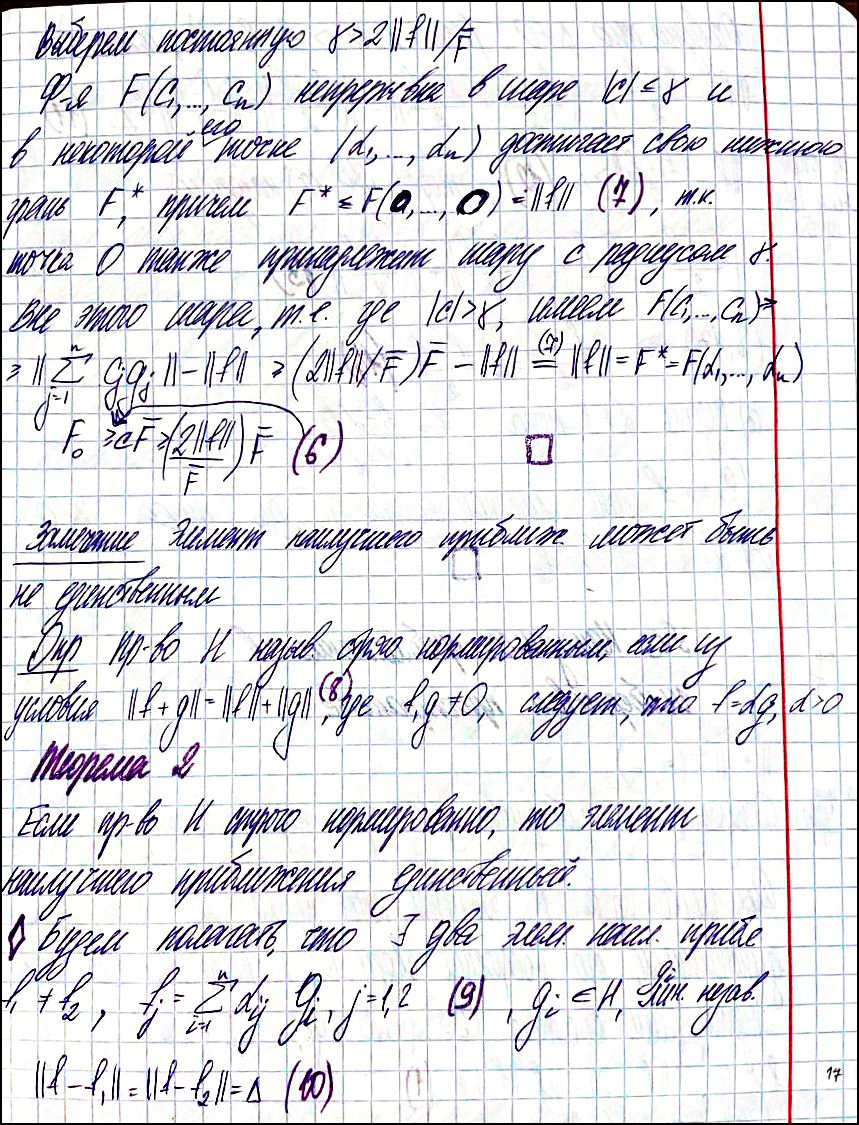 Выберем постоянную γ > 2‖f‖/F̅
Ф-я F(C₁,...,Cₙ) непрерывна в шаре |C| ≤ γ и
в некоторой его точке (α₁,...,αₙ) достигает свою нижнюю
грань F*, причем F* ≤ F(0,...,0) = ‖f‖ (7), т.к.
точка 0 также принадлежит шару с радиусом γ.
Вне этого шара, т.е. где |c| > γ, имеем F(C₁,...,Cₙ) ≥
≥ ‖∑ⁿⱼ₌₁ Cⱼgⱼ‖ - ‖f‖ ≥ (2‖f‖/F̅)F̅ - ‖f‖ =⁽⁷⁾ ‖f‖ = F* = F(α₁,...,αₙ)
F₀ ≥ cF̅ ≥ (2‖f‖/F̅) F̅ (6) □
Замечание Элемент наилучшего приближ. может быть
не единственным
Опр Пр-во H назыв. строго нормированным, если из
условия ‖f+g‖ = ‖f‖+‖g‖ (8), где f,g ≠ 0, следует, что f=αg, α>0
Теорема 2
Если пр-во H строго нормированно, то элемент
наилучшего приближения единственный.
◊ Будем полагать, что ∃ два элем. наил. прибл
f₁ ≠ f₂, fⱼ = ∑ⁿᵢ₌₁ αᵢⱼ gᵢ, j=1,2 (9), gᵢ ∈ H, лин. незав.
‖f - f₁‖ = ‖f - f₂‖ = Δ (10)
17